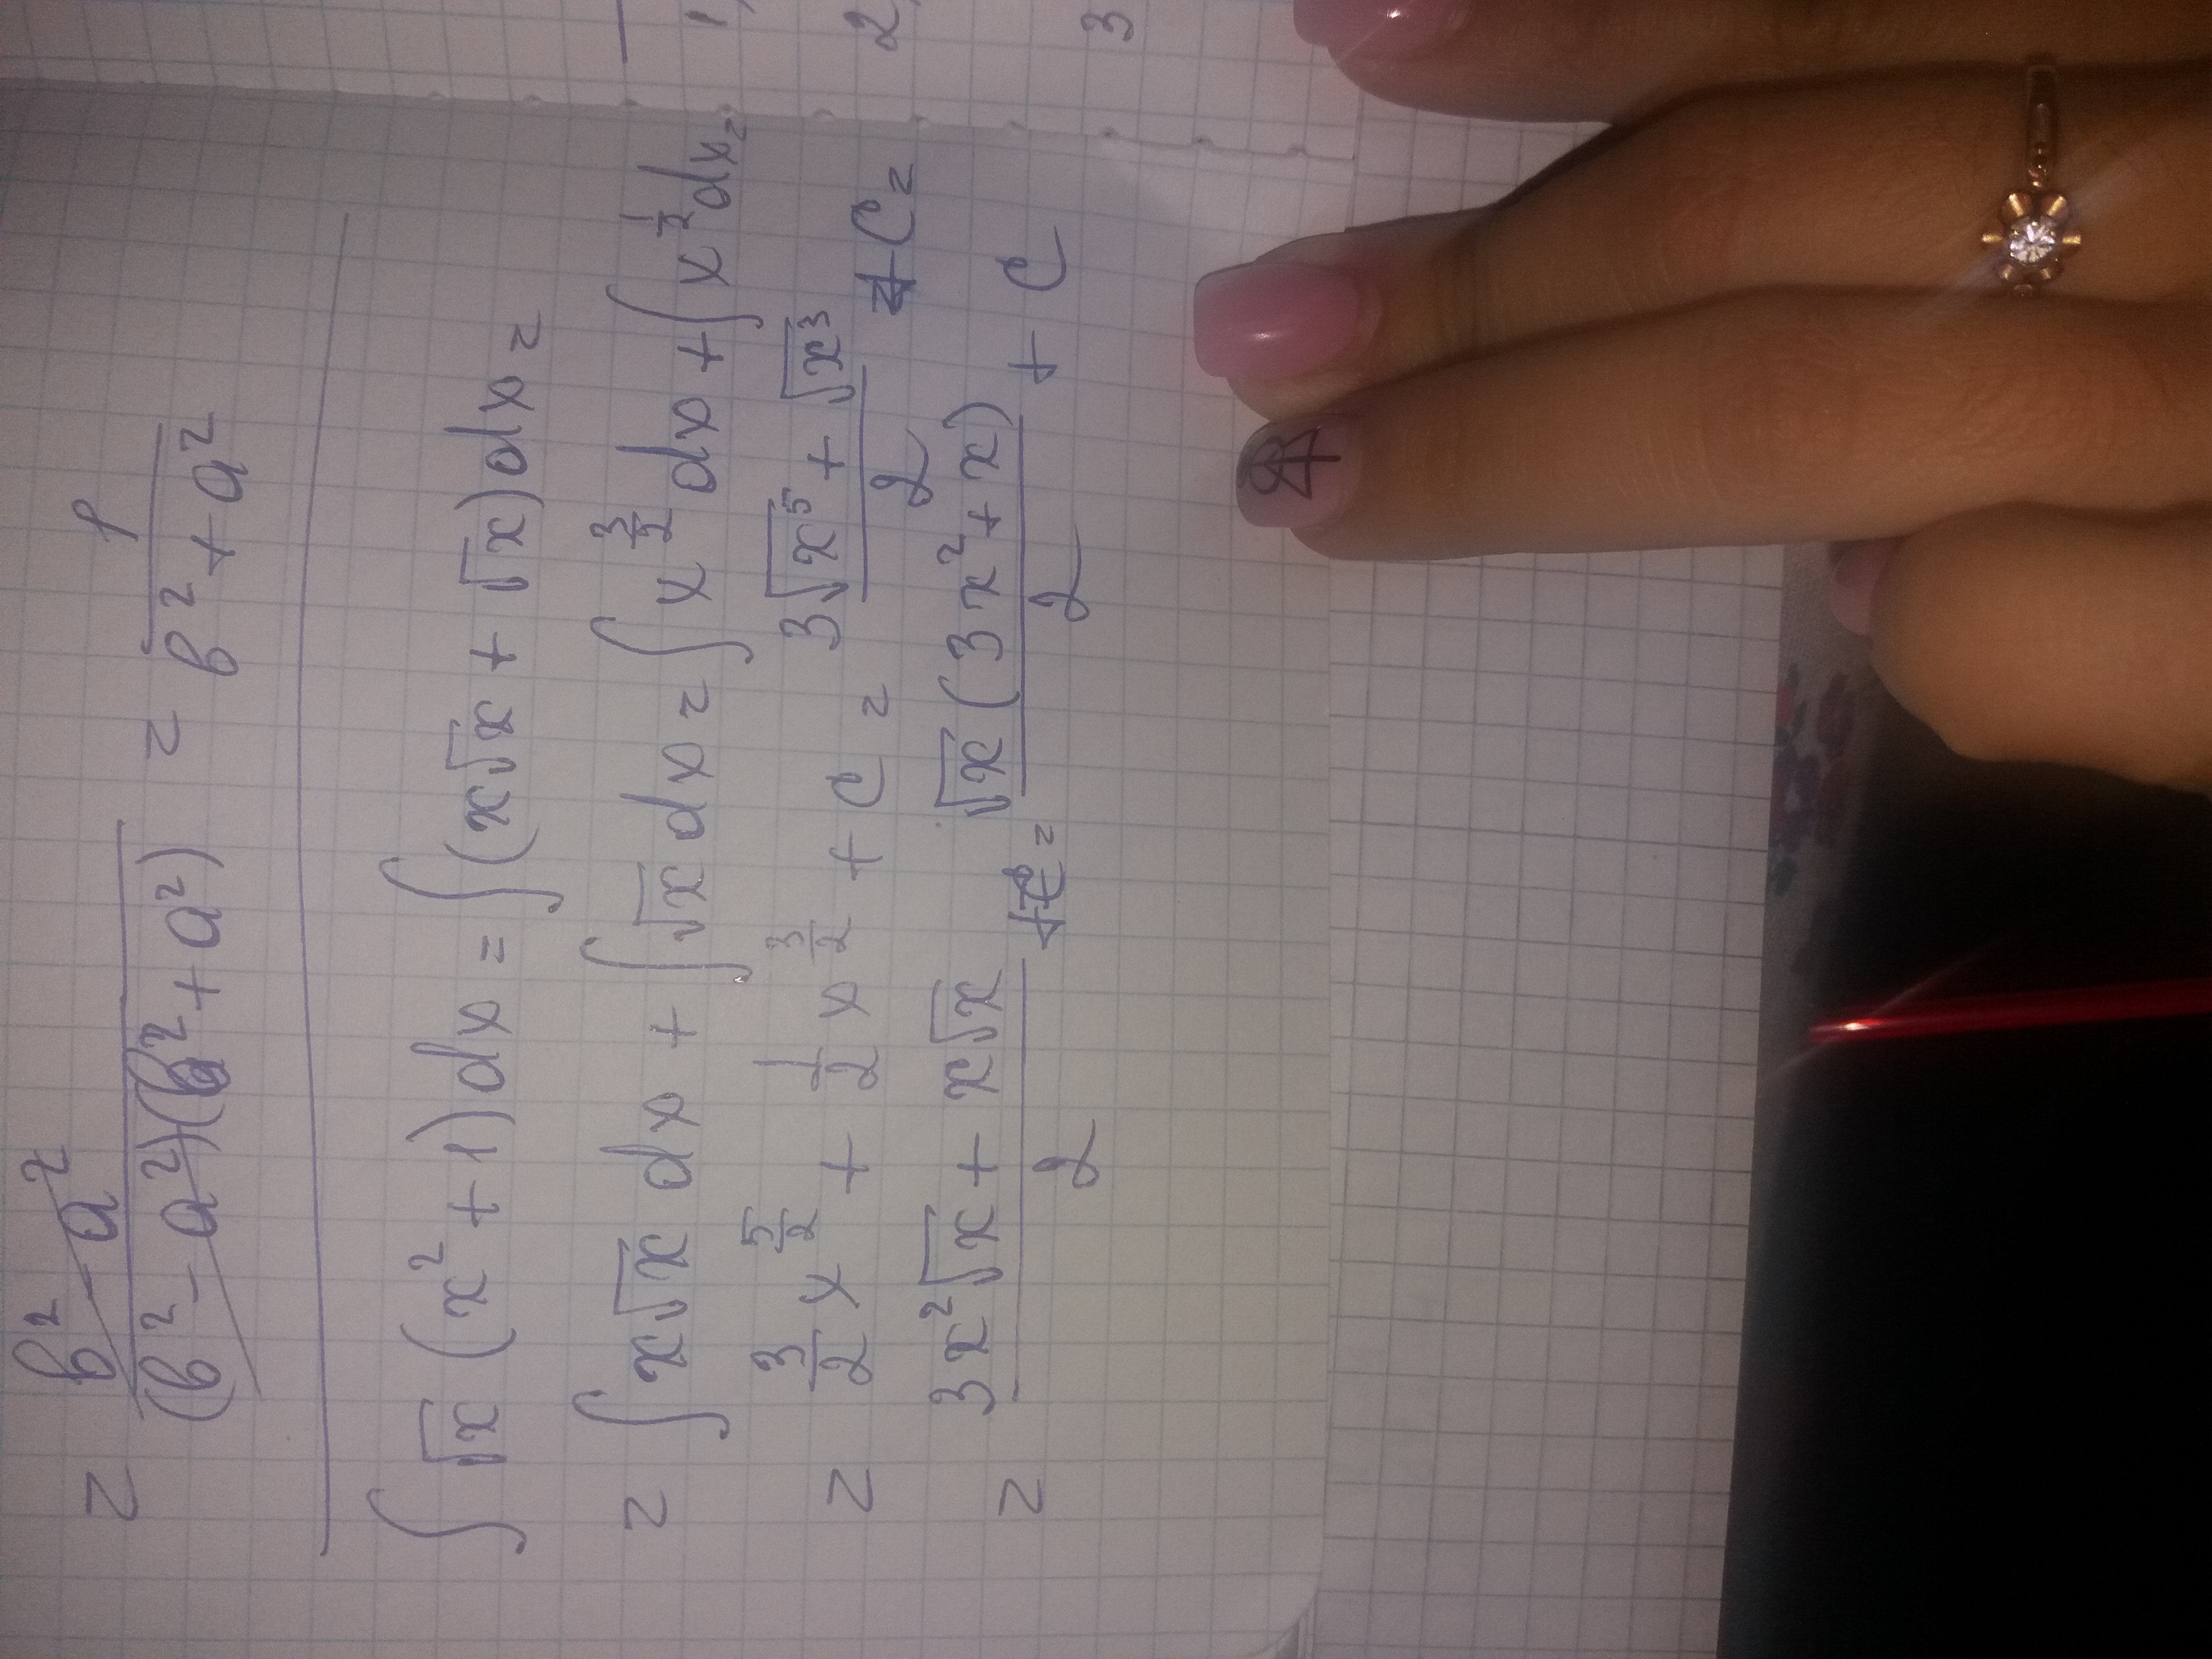 = b² - a² / (b² - a²)(b² + a²) = 1 / b² + a²
∫ √x (x² + 1) dx = ∫ (x√x + √x) dx =
= ∫ x√x dx + ∫ √x dx = ∫ x^(3/2) dx + ∫ x^(1/2) dx =
= 3/2 x^(5/2) + 1/2 x^(3/2) + C = 3√x⁵ + √x³ / 2 + C =
= 3x²√x + x√x / 2 = √x (3x² + x) / 2 + C
1
2
3